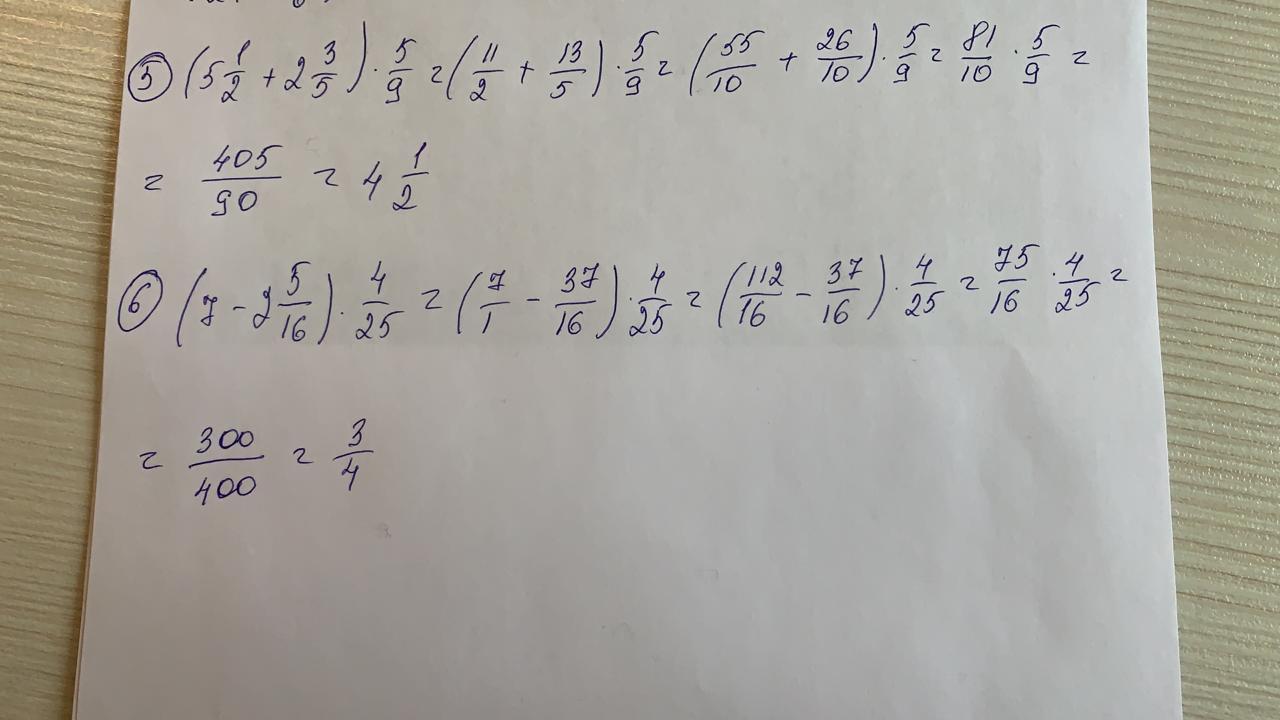 ⑤ (5 1/2 + 2 3/5) · 5/9 = (11/2 + 13/5) · 5/9 = (55/10 + 26/10) · 5/9 = 81/10 · 5/9 =
= 405/90 = 4 1/2
⑥ (7 - 2 5/16) · 4/25 = (7/1 - 37/16) · 4/25 = (112/16 - 37/16) · 4/25 = 75/16 · 4/25 =
= 300/400 = 3/4